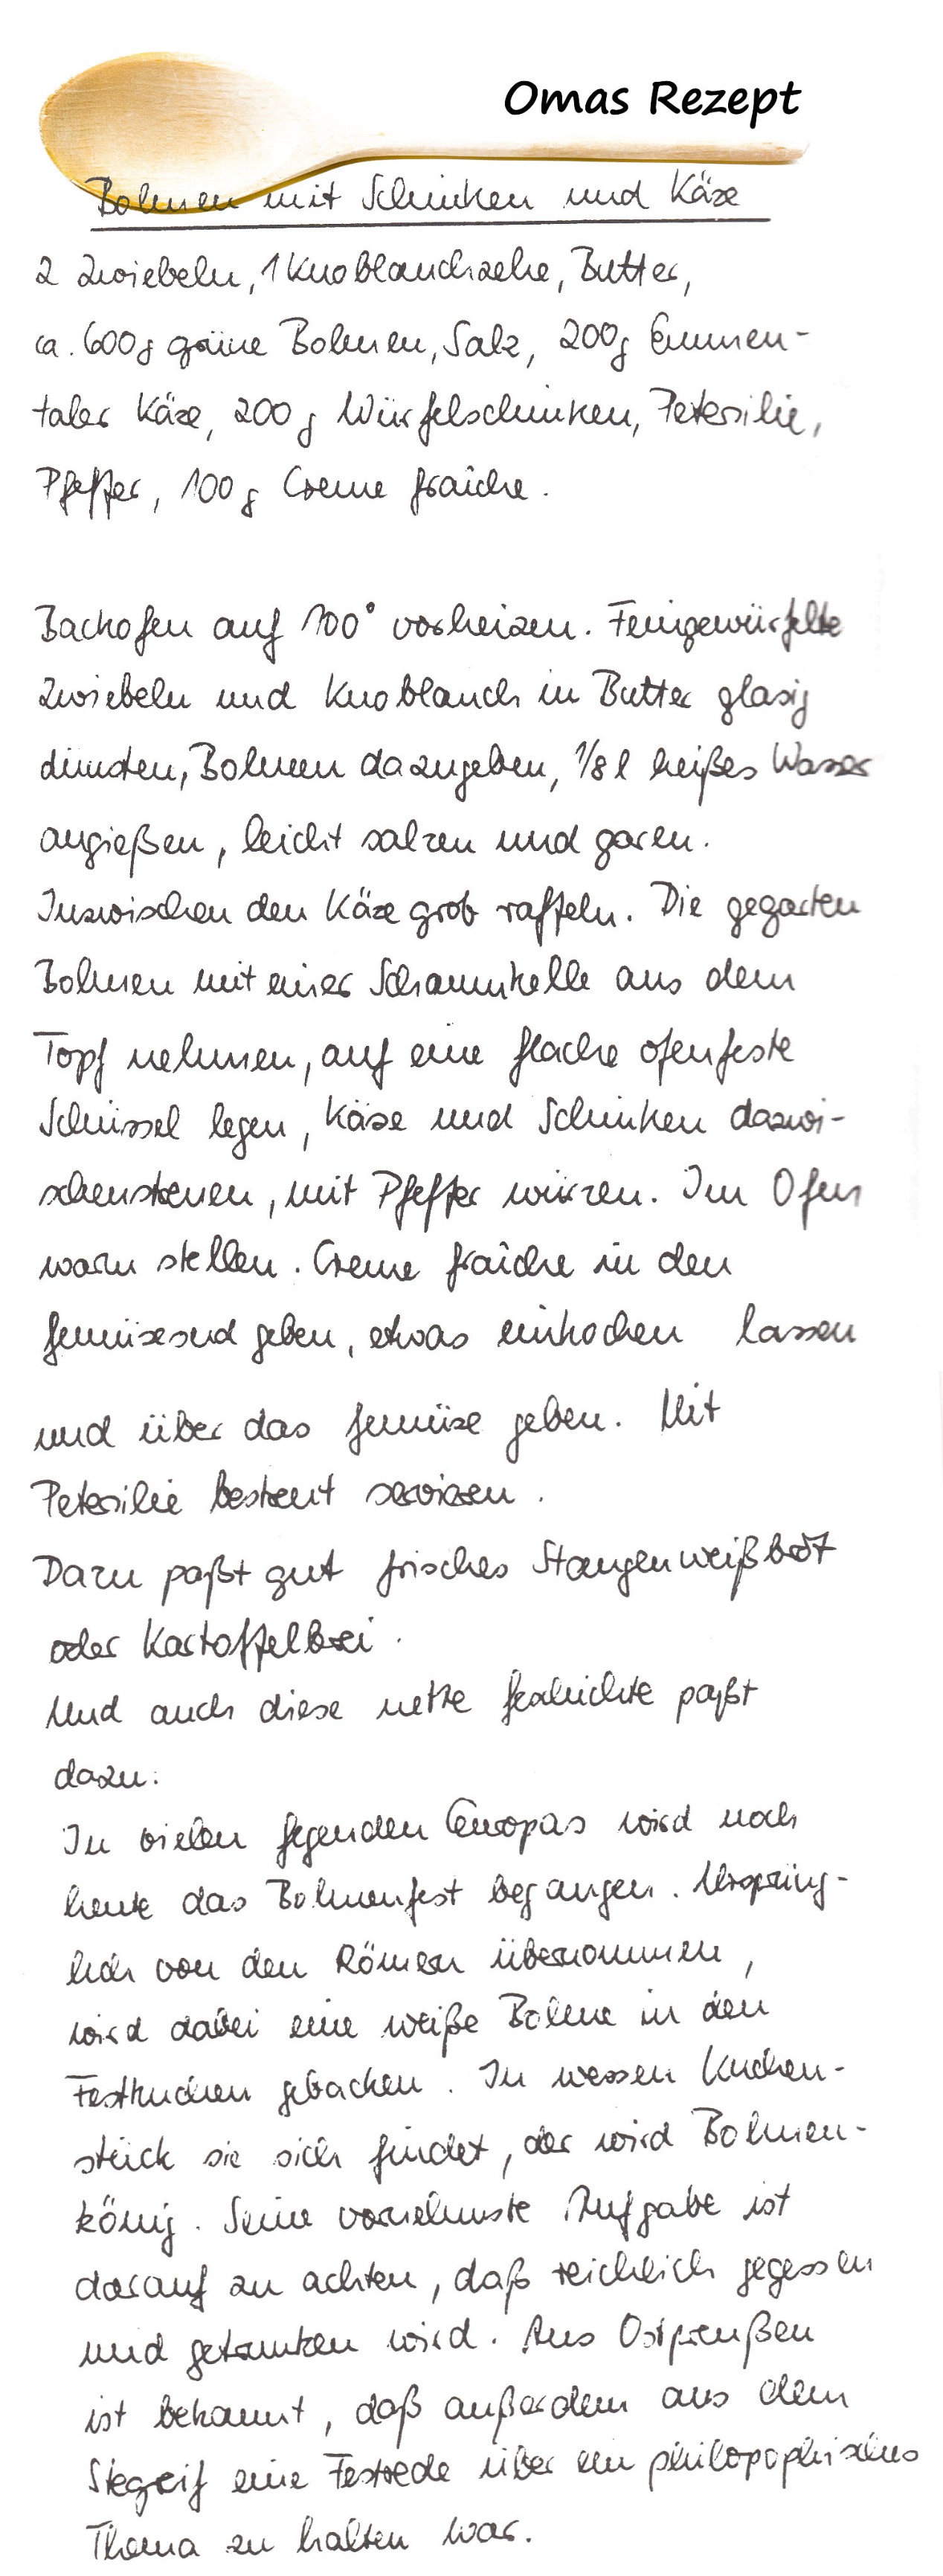 Omas Rezept
Bohnen mit Schinken und Käse
2 Zwiebeln, 1 Knoblauchzehe, Butter,
ca. 600g grüne Bohnen, Salz, 200g Emmen-
taler Käse, 200 g Würfelschinken, Petersilie,
Pfeffer, 100g Creme fraîche.
Backofen auf 100° vorheizen. Feingewürfelte
Zwiebeln und Knoblauch in Butter glasig
dünsten, Bohnen dazugeben, 1/8 l heißes Wasser
angießen, leicht salzen und garen.
Inzwischen den Käse grob raffeln. Die gegarten
Bohnen mit einer Schaumkelle aus dem
Topf nehmen, auf eine flache ofenfeste
Schüssel legen, Käse und Schinken dazwi-
schenstreuen, mit Pfeffer würzen. Im Ofen
warm stellen. Creme fraîche in den
Gemüsesud geben, etwas einkochen lassen
und über das Gemüse geben. Mit
Petersilie bestreut servieren.
Dazu paßt gut frisches Stangenweißbrot
oder Kartoffelbrei.
Und auch diese nette Geschichte paßt
dazu:
In vielen Gegenden Europas wird noch
heute das Bohnenfest begangen. Ursprüng-
lich von den Römern übernommen,
wird dabei eine weiße Bohne in den
Festkuchen gebacken. In wessen Kuchen-
stück sie sich findet, der wird Bohnen-
könig. Seine vornehmste Aufgabe ist
darauf zu achten, daß reichlich gegessen
und getrunken wird. Aus Ostpreußen
ist bekannt, daß außerdem aus dem
Stegreif eine Festrede über ein philosophisches
Thema zu halten war.